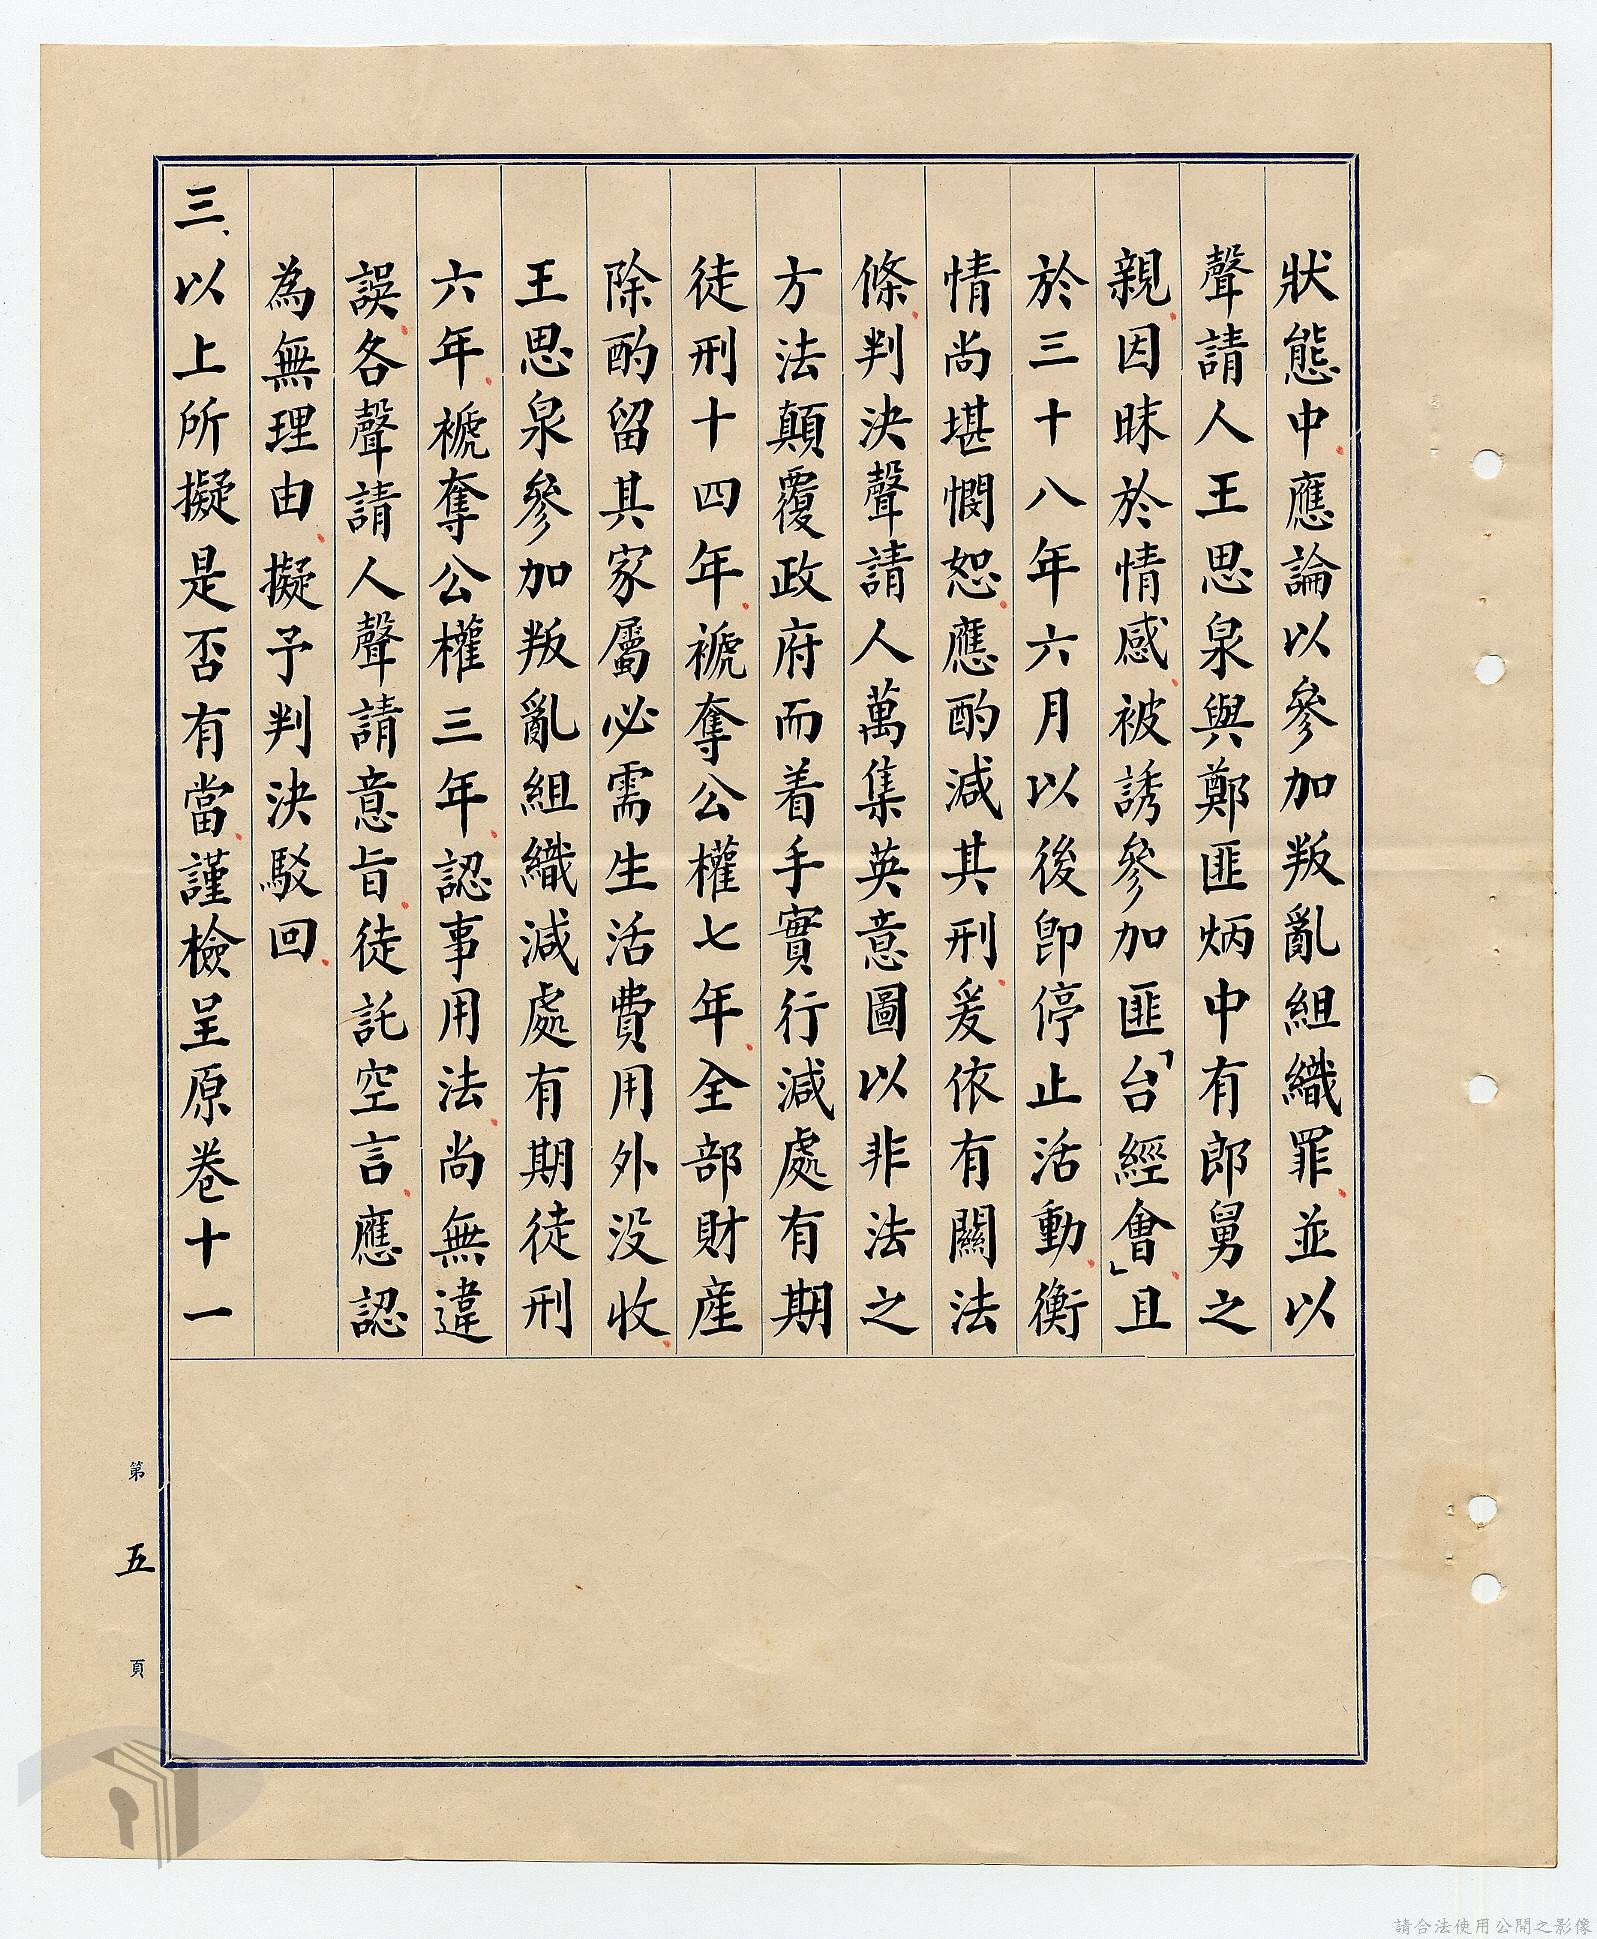 狀態中應論以參加叛亂組織罪並以
聲請人王思泉與鄭匪炳中有郎舅之
親因昧於情感被誘參加匪「台經會」且
於三十八年六月以後卽停止活動衡
情尚堪憫恕應酌減其刑爰依有關法
條判決聲請人萬集英意圖以非法之
方法顛覆政府而着手實行減處有期
徒刑十四年褫奪公權七年全部財產
除酌留其家屬必需生活費用外沒收
王思泉參加叛亂組織減處有期徒刑
六年褫奪公權三年認事用法尚無違
誤各聲請人聲請意旨徒託空言應認
為無理由擬予判決駁回
三、以上所擬是否有當謹檢呈原卷十一
第五頁
請合法使用公開之影像